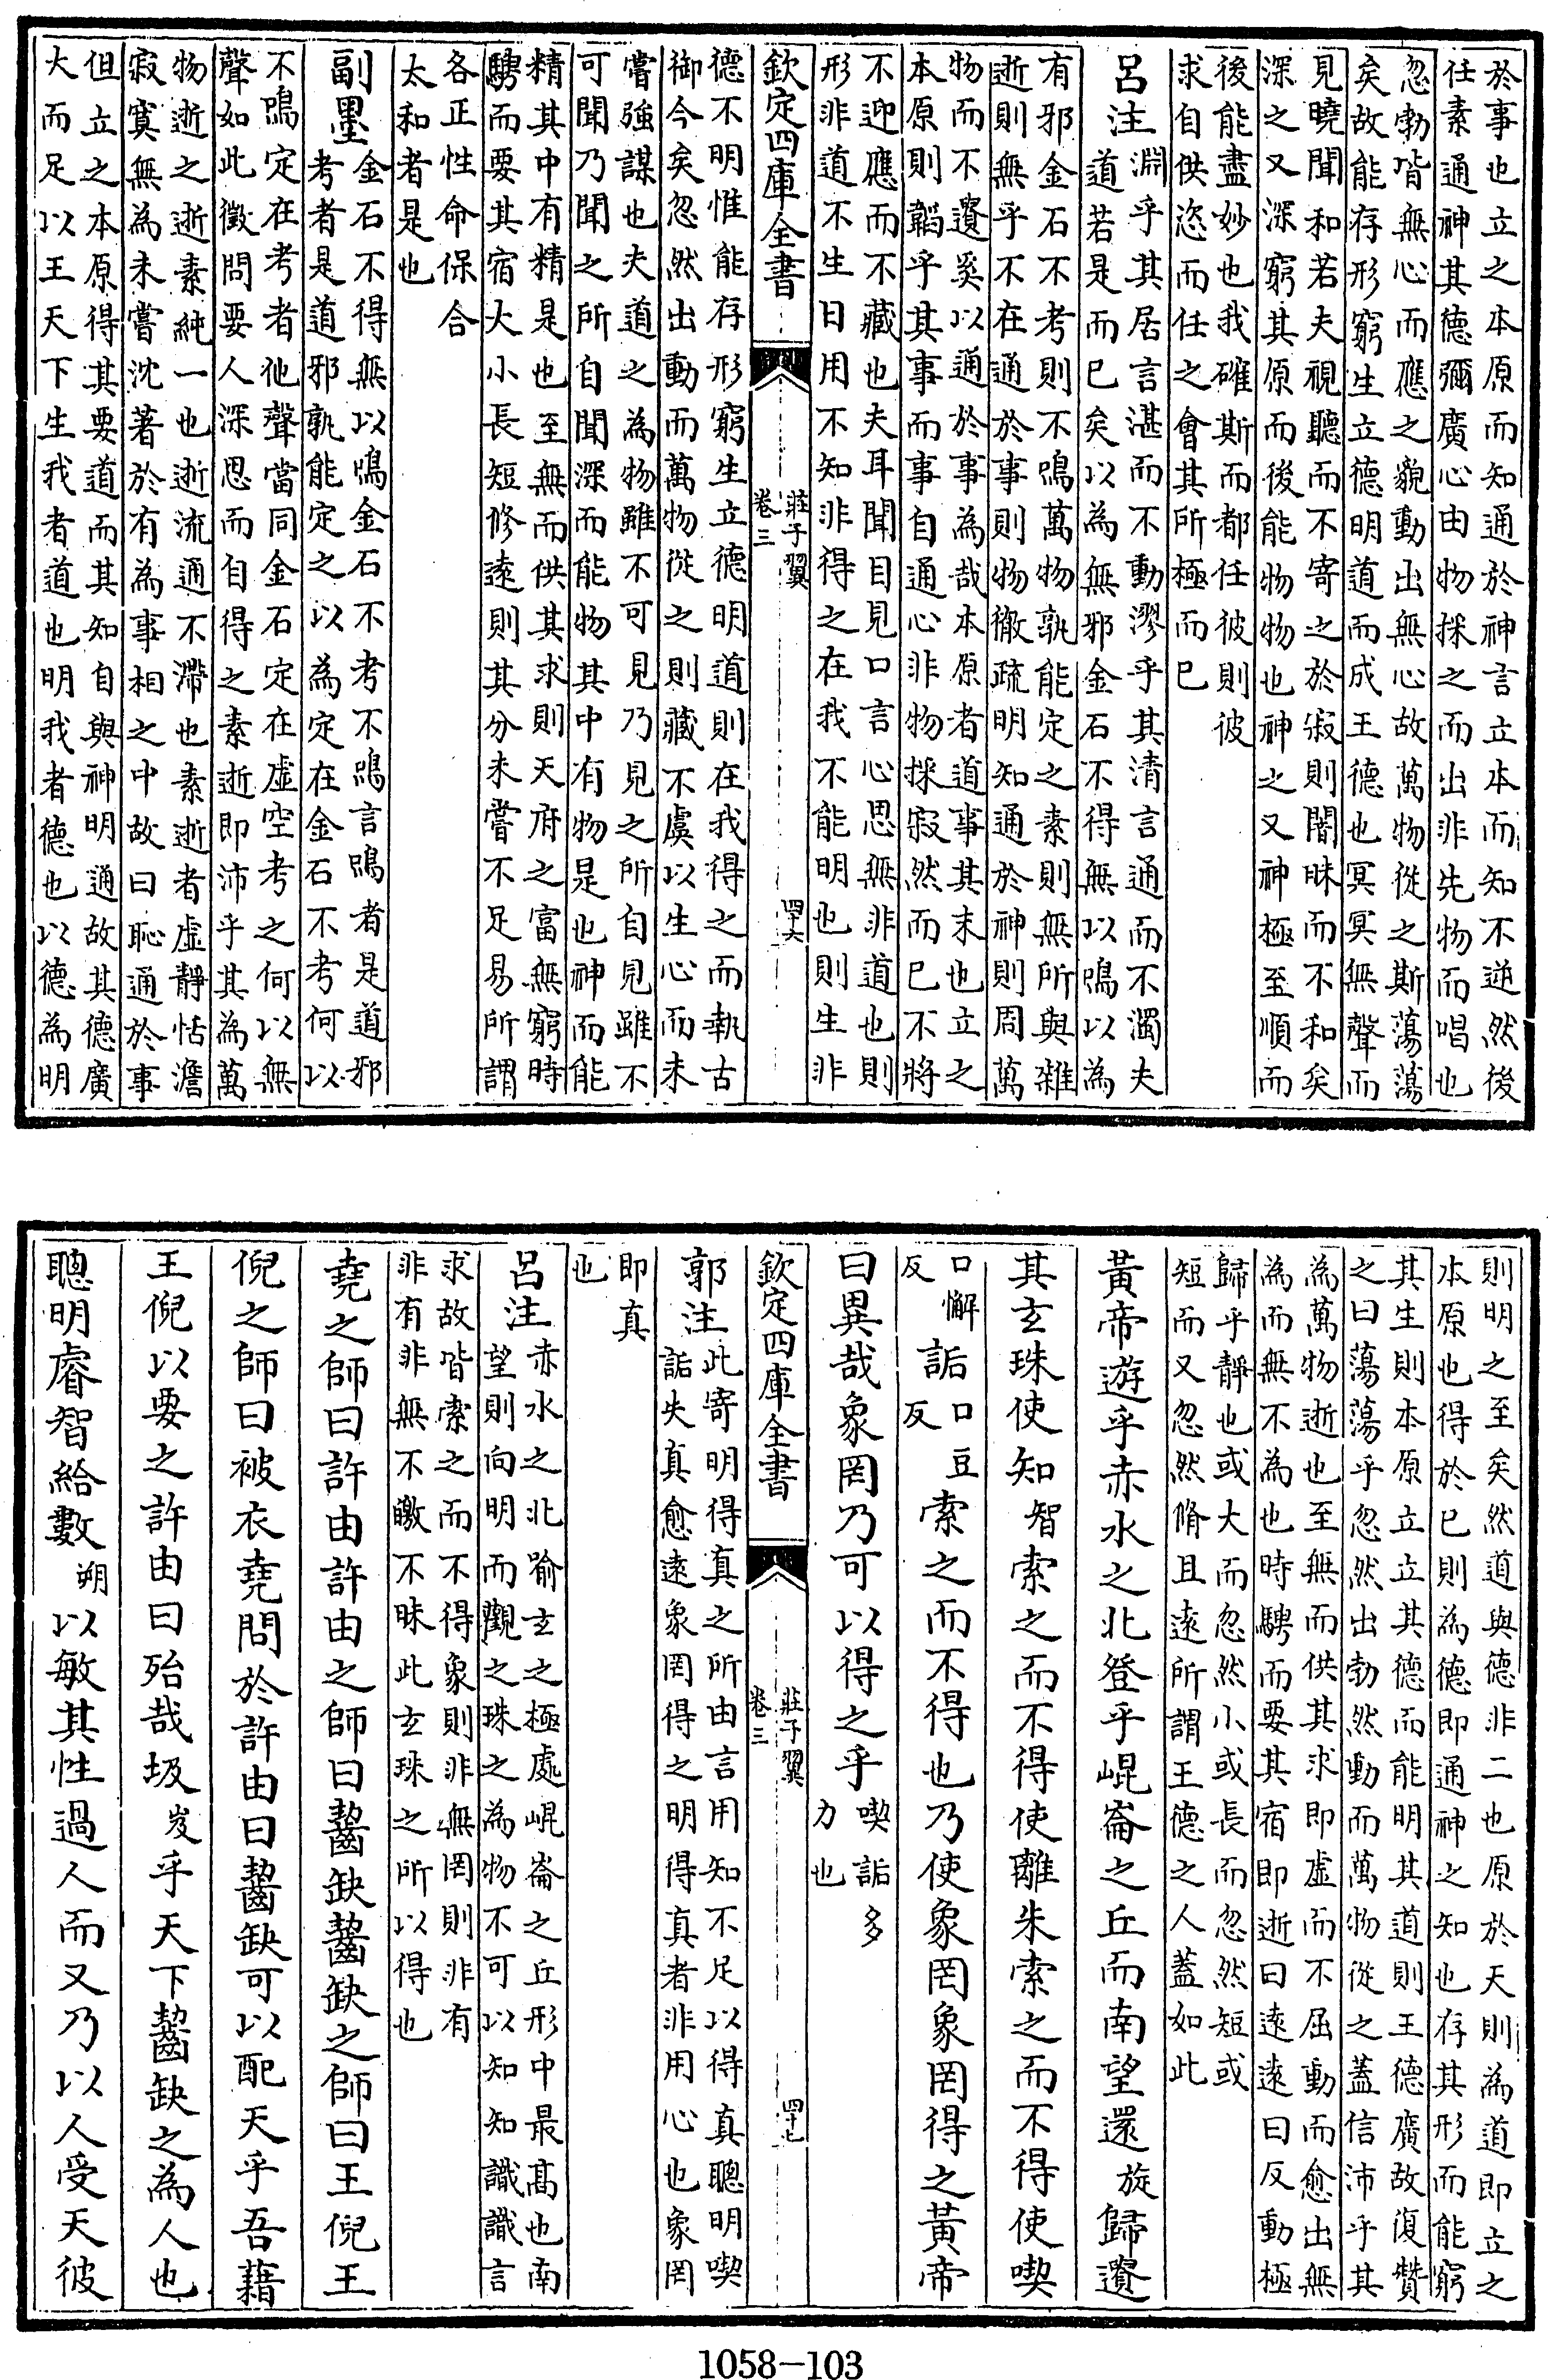 於事也立之本原而知通於神言立本而知不逆然後
任素通神其德彌廣心由物採之而出非先物而唱也
忽勃皆無心而應之貌動出無心故萬物從之斯蕩蕩
矣故能存形窮生立德明道而成王德也冥冥無聲而
見曉聞和若夫視聽而不寄之於寂則闇昧而不和矣
深之又深窮其原而後能物物也神之又神極至順而
後能盡妙也我確斯而都任彼則彼
求自供恣而任之會其所極而已
呂注
淵乎其居言湛而不動漻乎其清言通而不濁夫
道若是而已矣以為無邪金石不得無以鳴以為
有邪金石不考則不鳴萬物孰能定之素則無所與雜
逝則無乎不在通於事則物徹疏明知通於神則周萬
物而不遺奚以通於事為哉本原者道事其末也立之
本原則韜乎其事而事自通心非物採寂然而已不將
不迎應而不藏也夫耳聞目見口言心思無非道也則
形非道不生日用不知非得之在我不能明也則生非
欽定四庫全書
莊子翼
卷三
四十六
德不明惟能存形窮生立德明道則在我得之而執古
御今矣忽然出動而萬物從之則藏不虞以生心而未
嘗強謀也夫道之為物雖不可見乃見之所自見雖不
可聞乃聞之所自聞深而能物其中有物是也神而能
精其中有精是也至無而供其求則天府之富無窮時
騁而要其宿大小長短修遠則其分未嘗不足易所謂
各正性命保合
太和者是也
副墨
金石不得無以鳴金石不考不鳴言鳴者是道邪
考者是道邪孰能定之以為定在金石不考何以
不鳴定在考者他聲當同金石定在虛空考之何以無
聲如此徵問要人深思而自得之素逝即沛乎其為萬
物逝之逝素純一也逝流通不滯也素逝者虛靜恬澹
寂寞無為未嘗沈著於有為事相之中故曰恥通於事
但立之本原得其要道而其知自與神明通故其德廣
大而足以王天下生我者道也明我者德也以德為明
則明之至矣然道與德非二也原於天則為道即立之
本原也得於己則為德即通神之知也存其形而能窮
其生則本原立立其德而能明其道則王德廣故復贊
之曰蕩蕩乎忽然出勃然動而萬物從之蓋信沛乎其
為萬物逝也至無而供其求即虛而不屈動而愈出無
為而無不為也時騁而要其宿即逝曰遠遠曰反動極
歸乎靜也或大而忽然小或長而忽然短或
短而又忽然脩且遠所謂王德之人蓋如此
黃帝遊乎赤水之北登乎崐崙之丘而南望還旋歸遺
其玄珠使知智索之而不得使離朱索之而不得使喫
口懈反詬口豆反索之而不得也乃使象罔象罔得之黃帝
曰異哉象罔乃可以得之乎
喫詬多
力也
欽定四庫全書
莊子翼
卷三
四十七
郭注
此寄明得真之所由言用知不足以得真聰明喫
詬失真愈遠象罔得之明得真者非用心也象罔
即真
也
呂注
赤水之北喻玄之極處崐崙之丘形中最高也南
望則向明而觀之珠之為物不可以知知識識言
求故皆索之而不得象則非無罔則非有
非有非無不皦不昧此玄珠之所以得也
堯之師曰許由許由之師曰齧缺齧缺之師曰王倪王
倪之師曰被衣堯問於許由曰齧缺可以配天乎吾藉
王倪以要之許由曰殆哉圾岌乎天下齧缺之為人也
聰明睿智給數朔以敏其性過人而又乃以人受天彼
1058-103